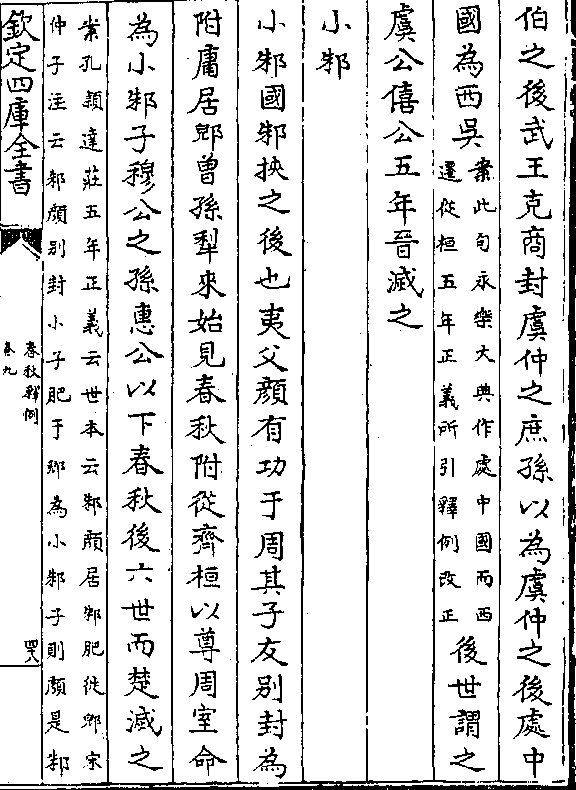 伯之後武王克商封虞仲之庶孫以為虞仲之後處中
國為西吳
案此句永樂大典作處中國而西
還從桓五年正義所引釋例改正
後世謂之
虞公僖公五年晉滅之
小邾
小邾國邾挾之後也夷父顔有功于周其子友别封為
附庸居郳曾孫犁來始見春秋附從齊桓以尊周室命
為小邾子穆公之孫惠公以下春秋後六世而楚滅之
案孔頴達莊五年正義云世本云邾顔居邾肥徙郳宋
仲子注云邾顔别封小子肥于郳為小邾子則顔是邾
欽定四庫全書
春秋釋例
卷九
四八